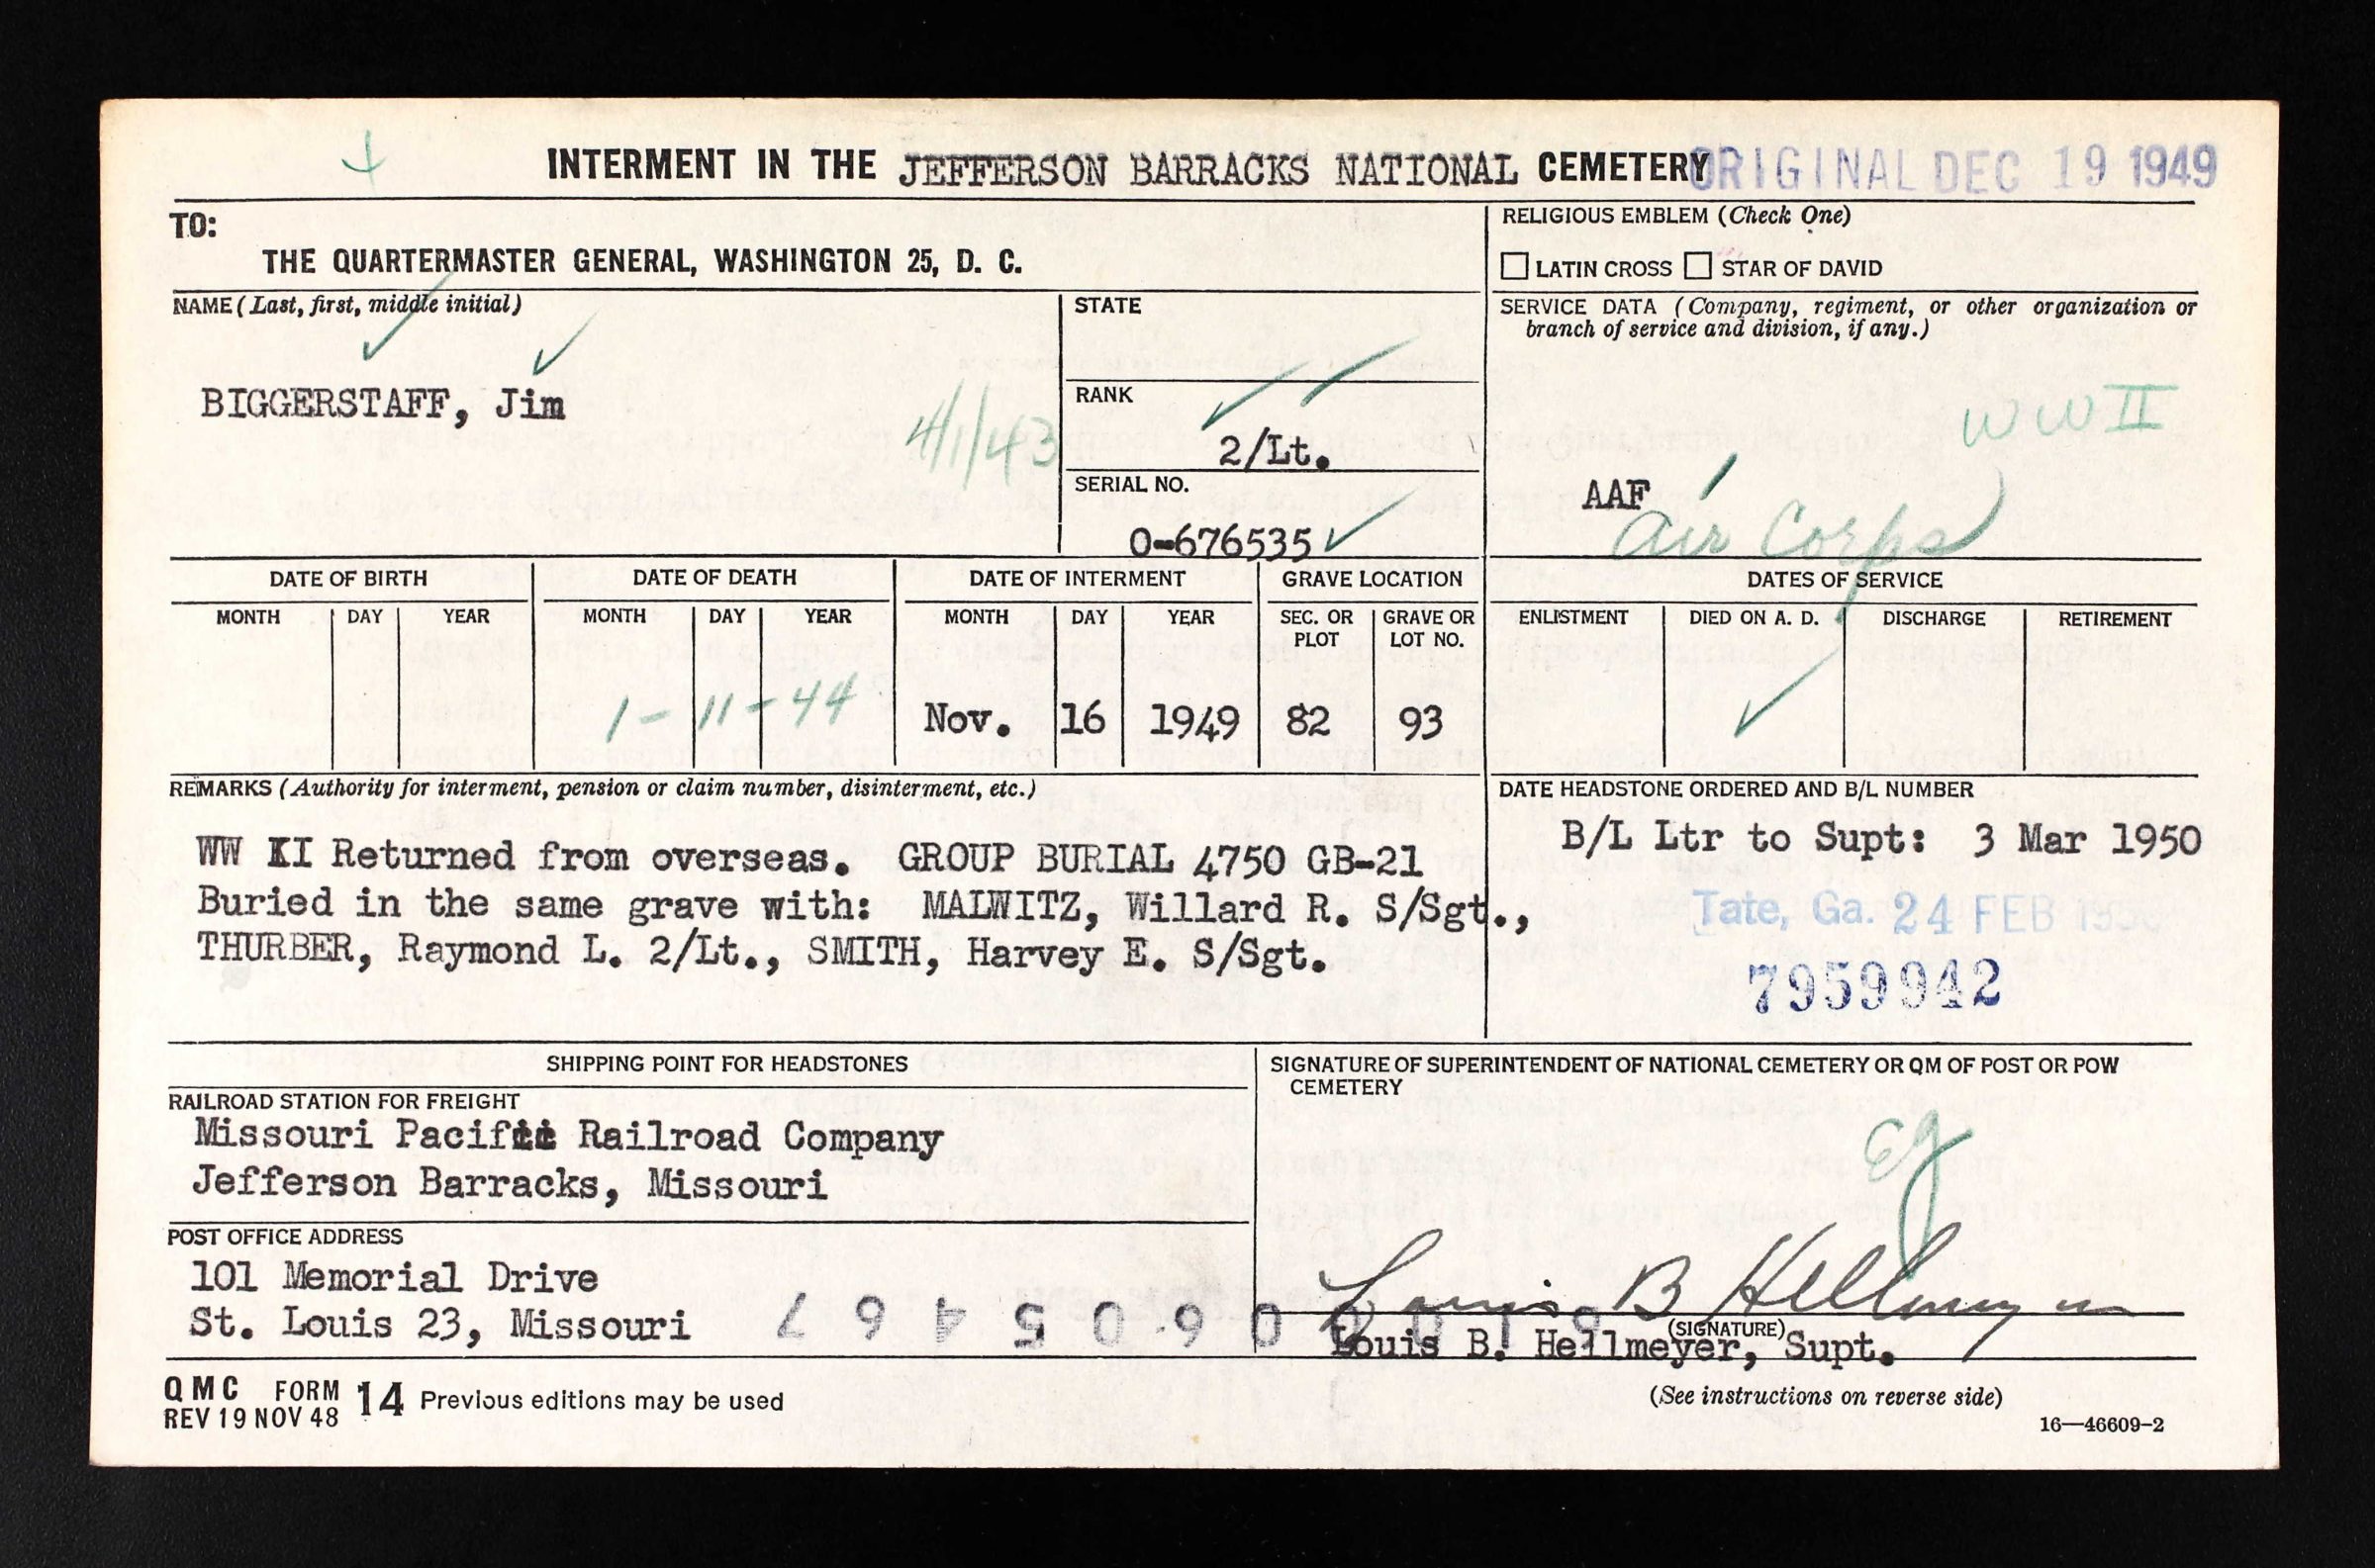 INTERMENT IN THE JEFFERSON BARRACKS NATIONAL CEMETERY ORIGINAL DEC 19 1949
TO:
THE QUARTERMASTER GENERAL, WASHINGTON 25, D. C.
RELIGIOUS EMBLEM (Check One)
LATIN CROSS STAR OF DAVID
NAME (Last, first, middle initial)
BIGGERSTAFF, Jim
4/1/43
STATE
RANK
2/Lt.
SERIAL NO.
O-676535
SERVICE DATA (Company, regiment, or other organization or
branch of service and division, if any.)
WW II
AAF
Air Corps
DATE OF BIRTH DATE OF DEATH DATE OF INTERMENT GRAVE LOCATION DATES OF SERVICE
MONTH DAY YEAR MONTH DAY YEAR MONTH DAY YEAR SEC. OR PLOT GRAVE OR LOT NO. ENLISTMENT DIED ON A. D. DISCHARGE RETIREMENT
1-11-44 Nov. 16 1949 82 93
REMARKS (Authority for interment, pension or claim number, disinterment, etc.)
WW II Returned from overseas. GROUP BURIAL 4750 GB-21
Buried in the same grave with: MALWITZ, Willard R. S/Sgt.,
THURBER, Raymond L. 2/Lt., SMITH, Harvey E. S/Sgt.
DATE HEADSTONE ORDERED AND B/L NUMBER
B/L Ltr to Supt: 3 Mar 1950
Tate, Ga. 24 FEB 1950
7959942
SHIPPING POINT FOR HEADSTONES
RAILROAD STATION FOR FREIGHT
Missouri Pacific Railroad Company
Jefferson Barracks, Missouri
POST OFFICE ADDRESS
101 Memorial Drive
St. Louis 23, Missouri
SIGNATURE OF SUPERINTENDENT OF NATIONAL CEMETERY OR QM OF POST OR POW
CEMETERY
Eg
Louis B Hellmeyer
(SIGNATURE)
Louis B. Hellmeyer, Supt.
QMC FORM 14 Previous editions may be used
REV 19 NOV 48
(See instructions on reverse side)
16—46609-2